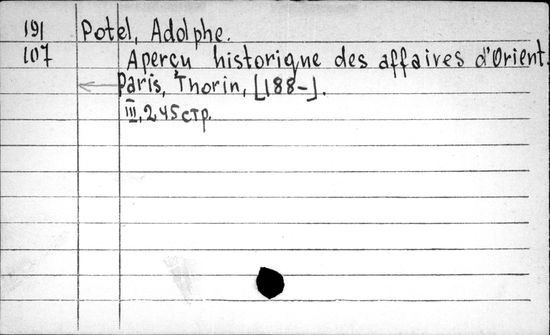 191 Potel, Adolphe.
107 Aperçu historique des affaires d'Orient.
Paris, Thorin, [188-].
III, 245 стр.